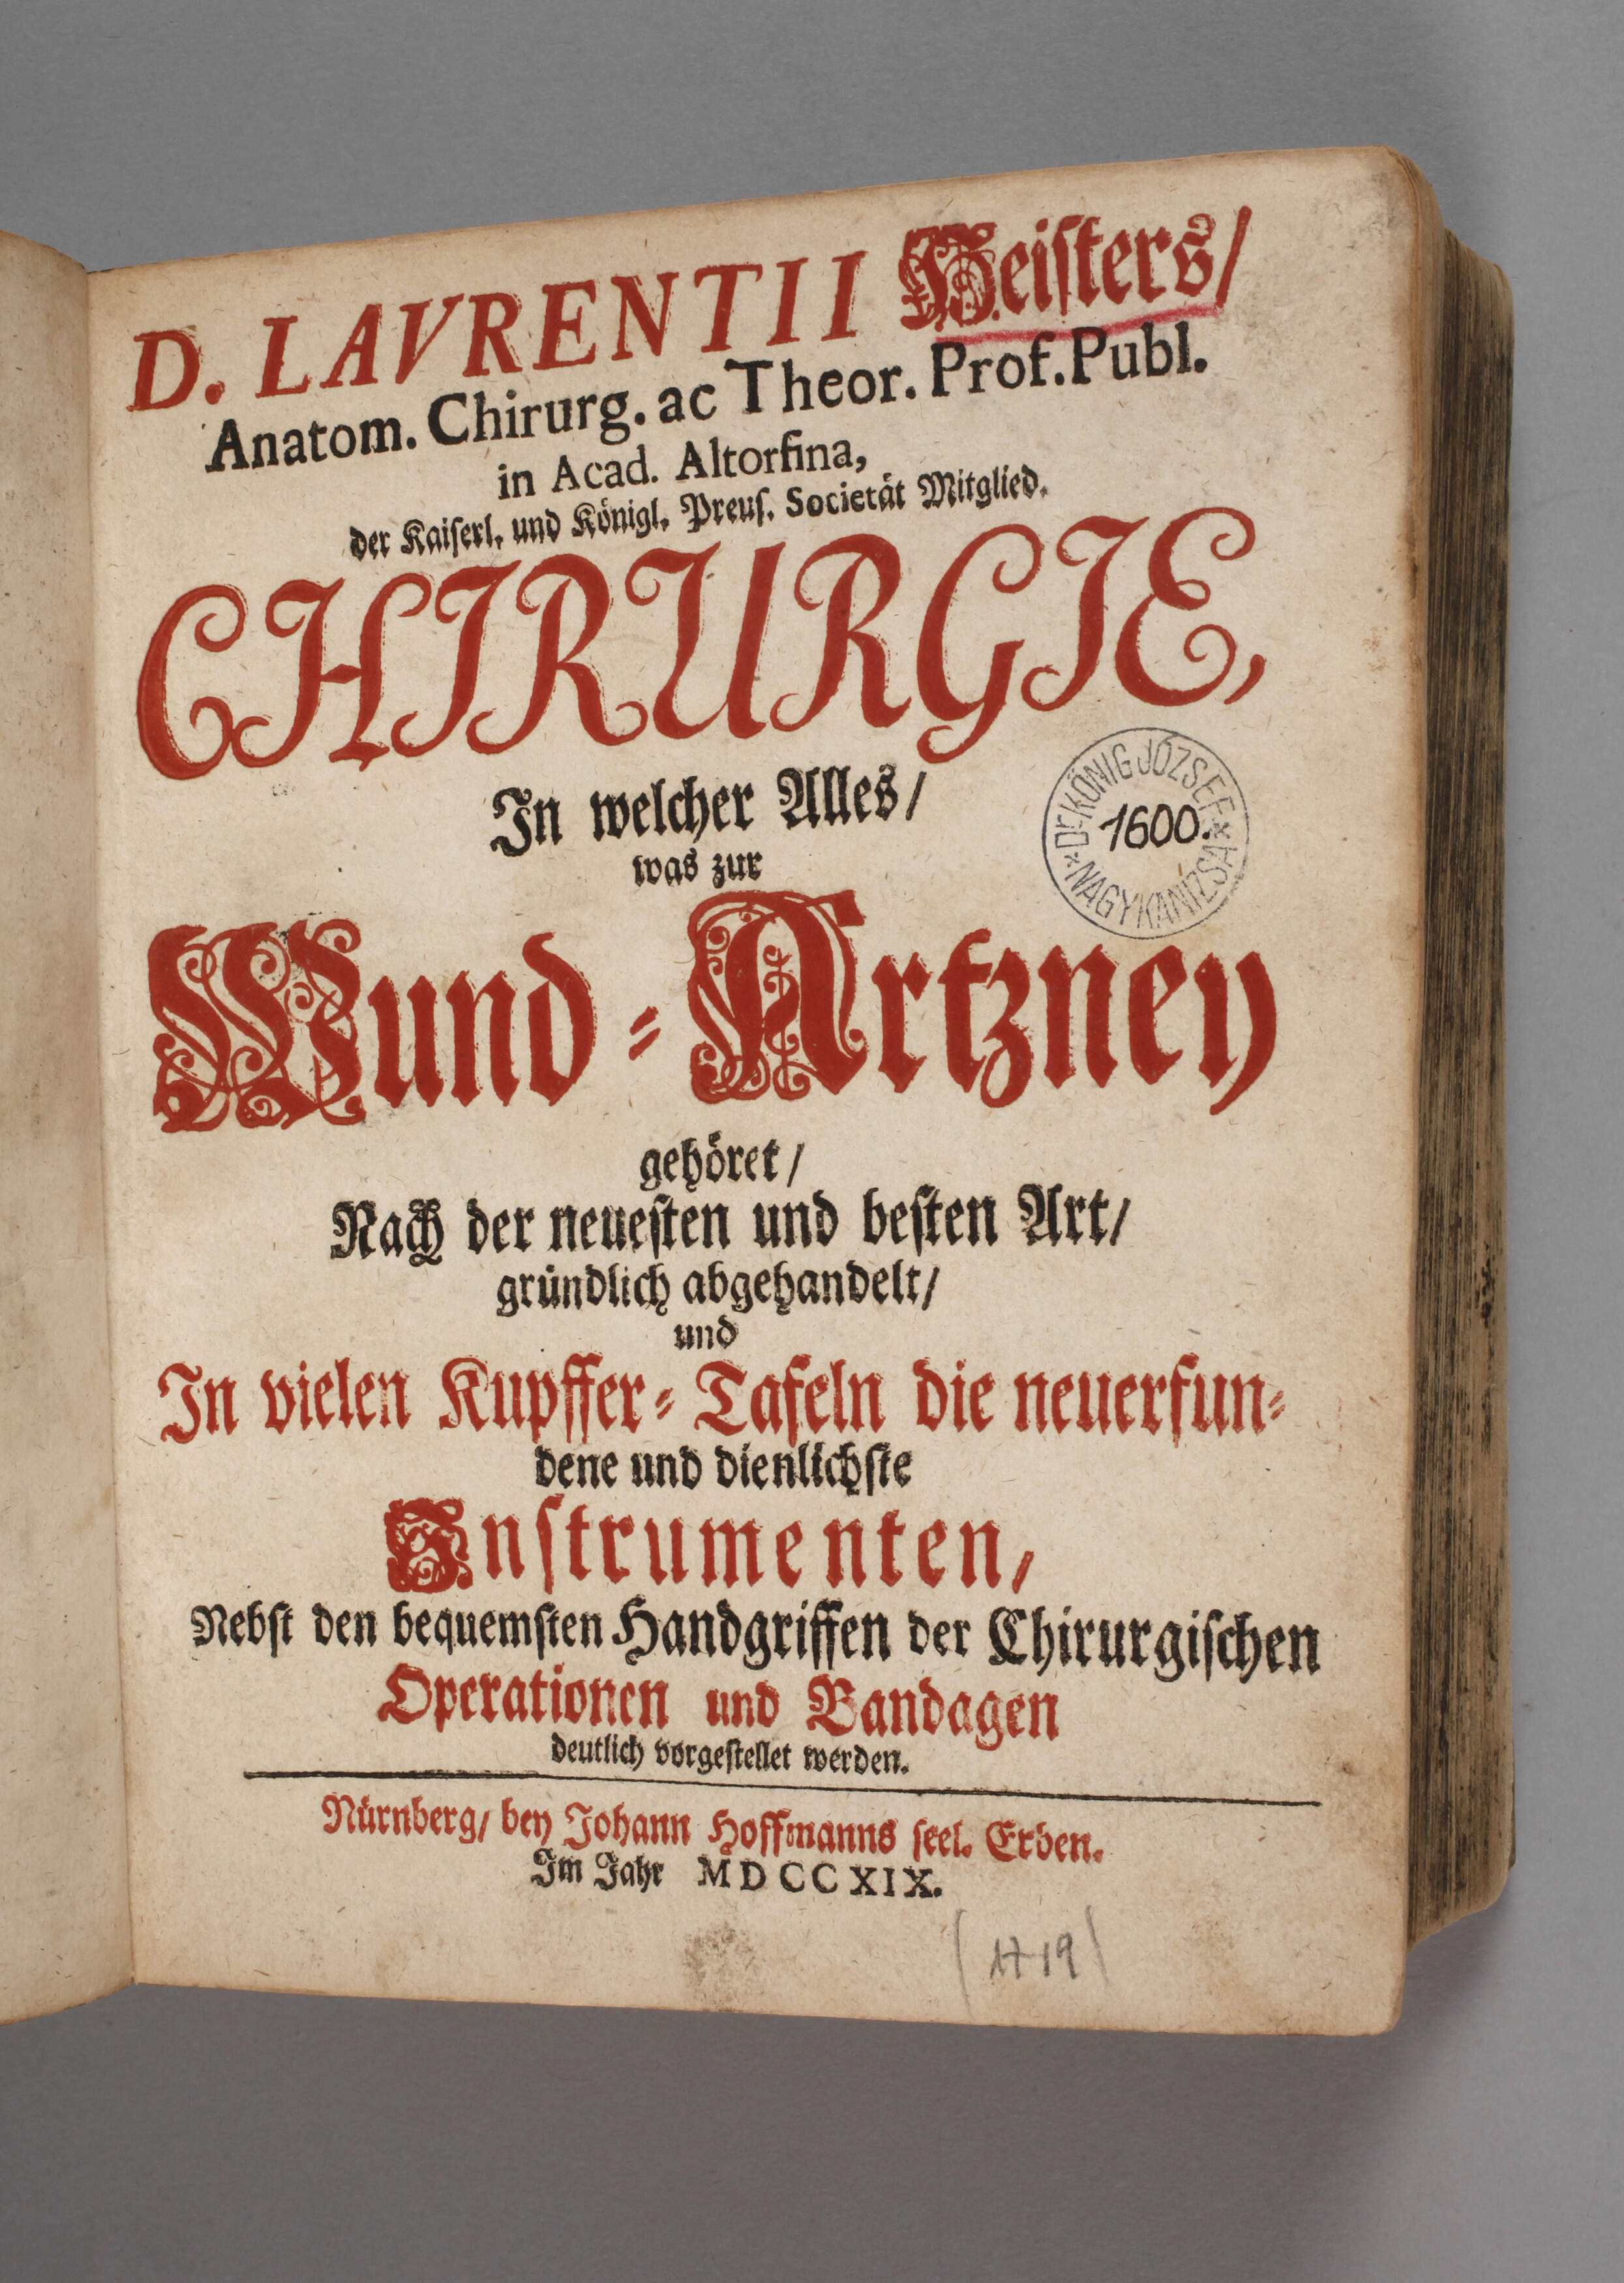 D. LAVRENTII Heisters/
Anatom. Chirurg. ac Theor. Prof. Publ.
in Acad. Altorfina,
der Kaiserl. und Königl. Preus. Societät Mitglied.
CHIRURGIE,
In welcher Alles/
was zur
Dr. KÖNIG JÓZSEF
1600.
* NAGYKANIZSA *
Wund-Artzney
gehöret/
Nach der neuesten und besten Art/
gründlich abgehandelt/
und
In vielen Kupffer-Tafeln die neuerfun-
dene und dienlichste
Instrumenten,
Nebst den bequemsten Handgriffen der Chirurgischen
Operationen und Bandagen
deutlich vorgestellet werden.
Nürnberg/ bey Johann Hoffmanns seel. Erben.
Im Jahr MDCCXIX.
(1719)